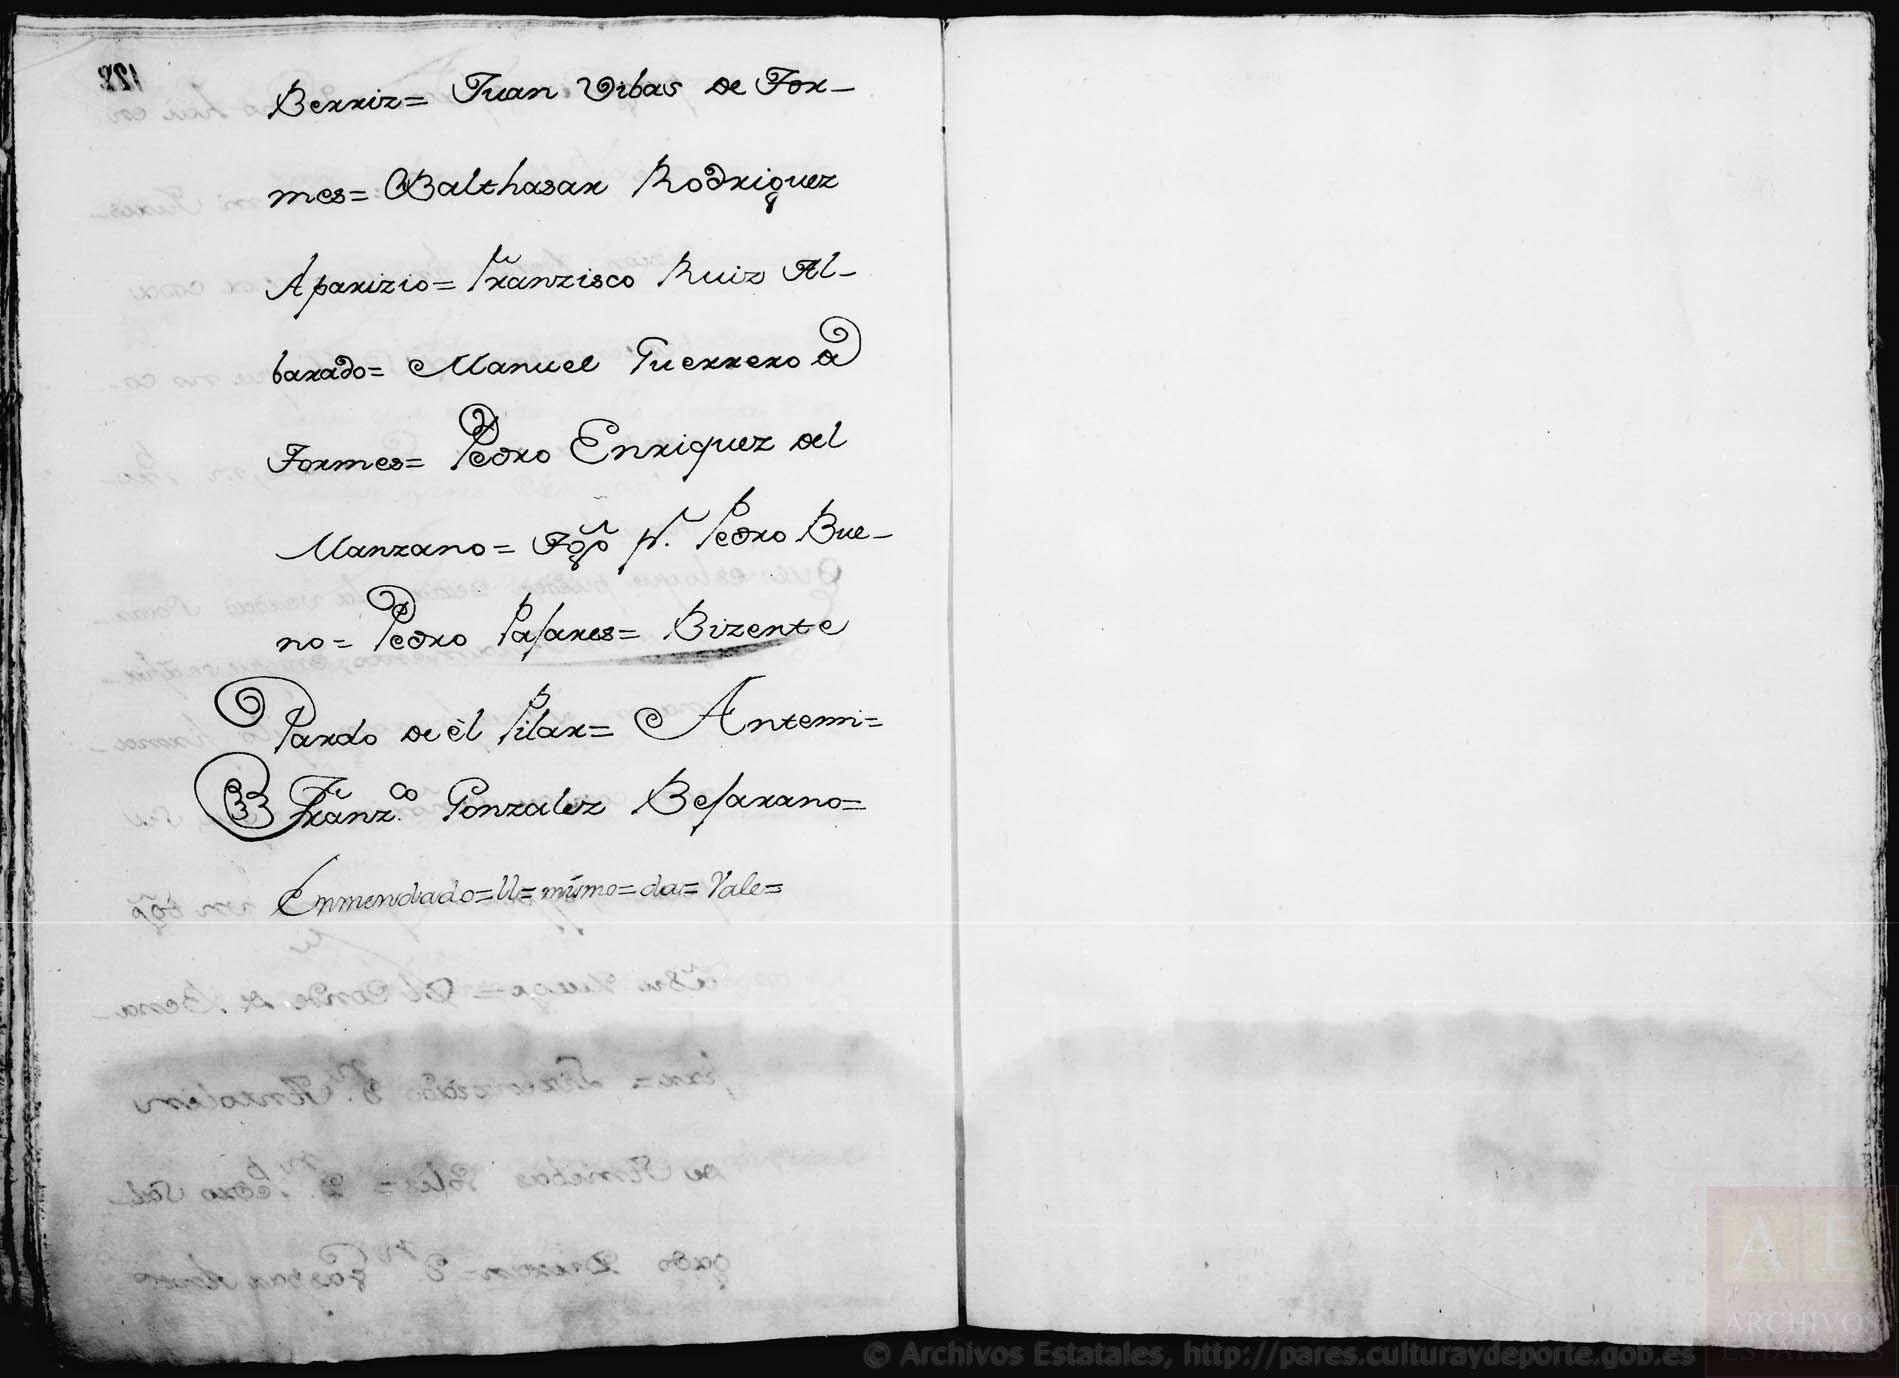 Berriz= Juan Vibas de For-
mes= Balthasar Rodriguez
Aparizio= Franzisco Ruiz Al-
barado= Manuel Guerrero d
Formes= Pedro Enriquez del
Manzano= Pedro Bue-
no= Pedro Pajares= Bizente
Pardo de èl Pilar= Antemi=
Franz.co Gonzalez Bejarano=
Enmendado=ll=mismo=da=Vale=
AE
ARCHIVOS
ESTATALES
© Archivos Estatales, http://pares.culturaydeporte.gob.es